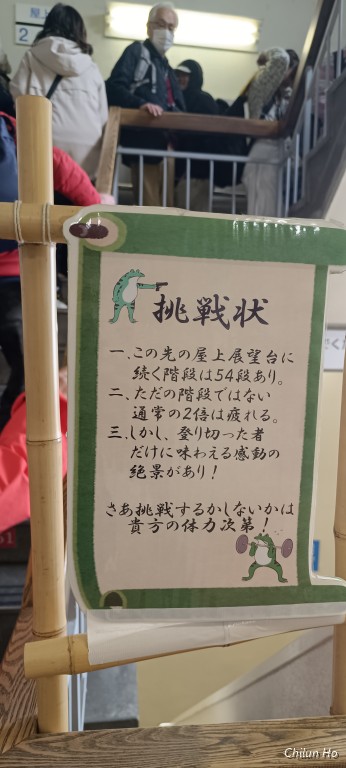 屋上
2
挑戦状
一、この先の屋上展望台に
続く階段は54段あり。
二、ただの階段ではない
通常の2倍は疲れる。
三、しかし、登り切った者
だけに味わえる感動の
絶景があり！
さあ挑戦するかしないかは
貴方の体力次第！
Chilun Ho